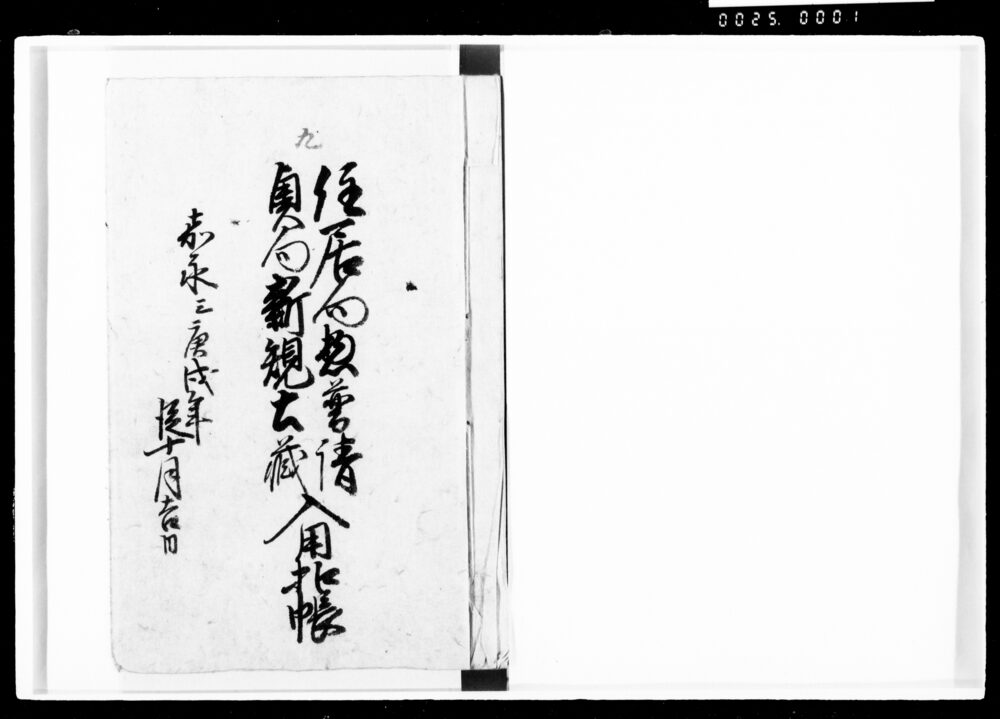 0025. 0001
九
住居向惣普請
貞向新規土蔵
入用払帳
嘉永三庚戌年
従十月吉日